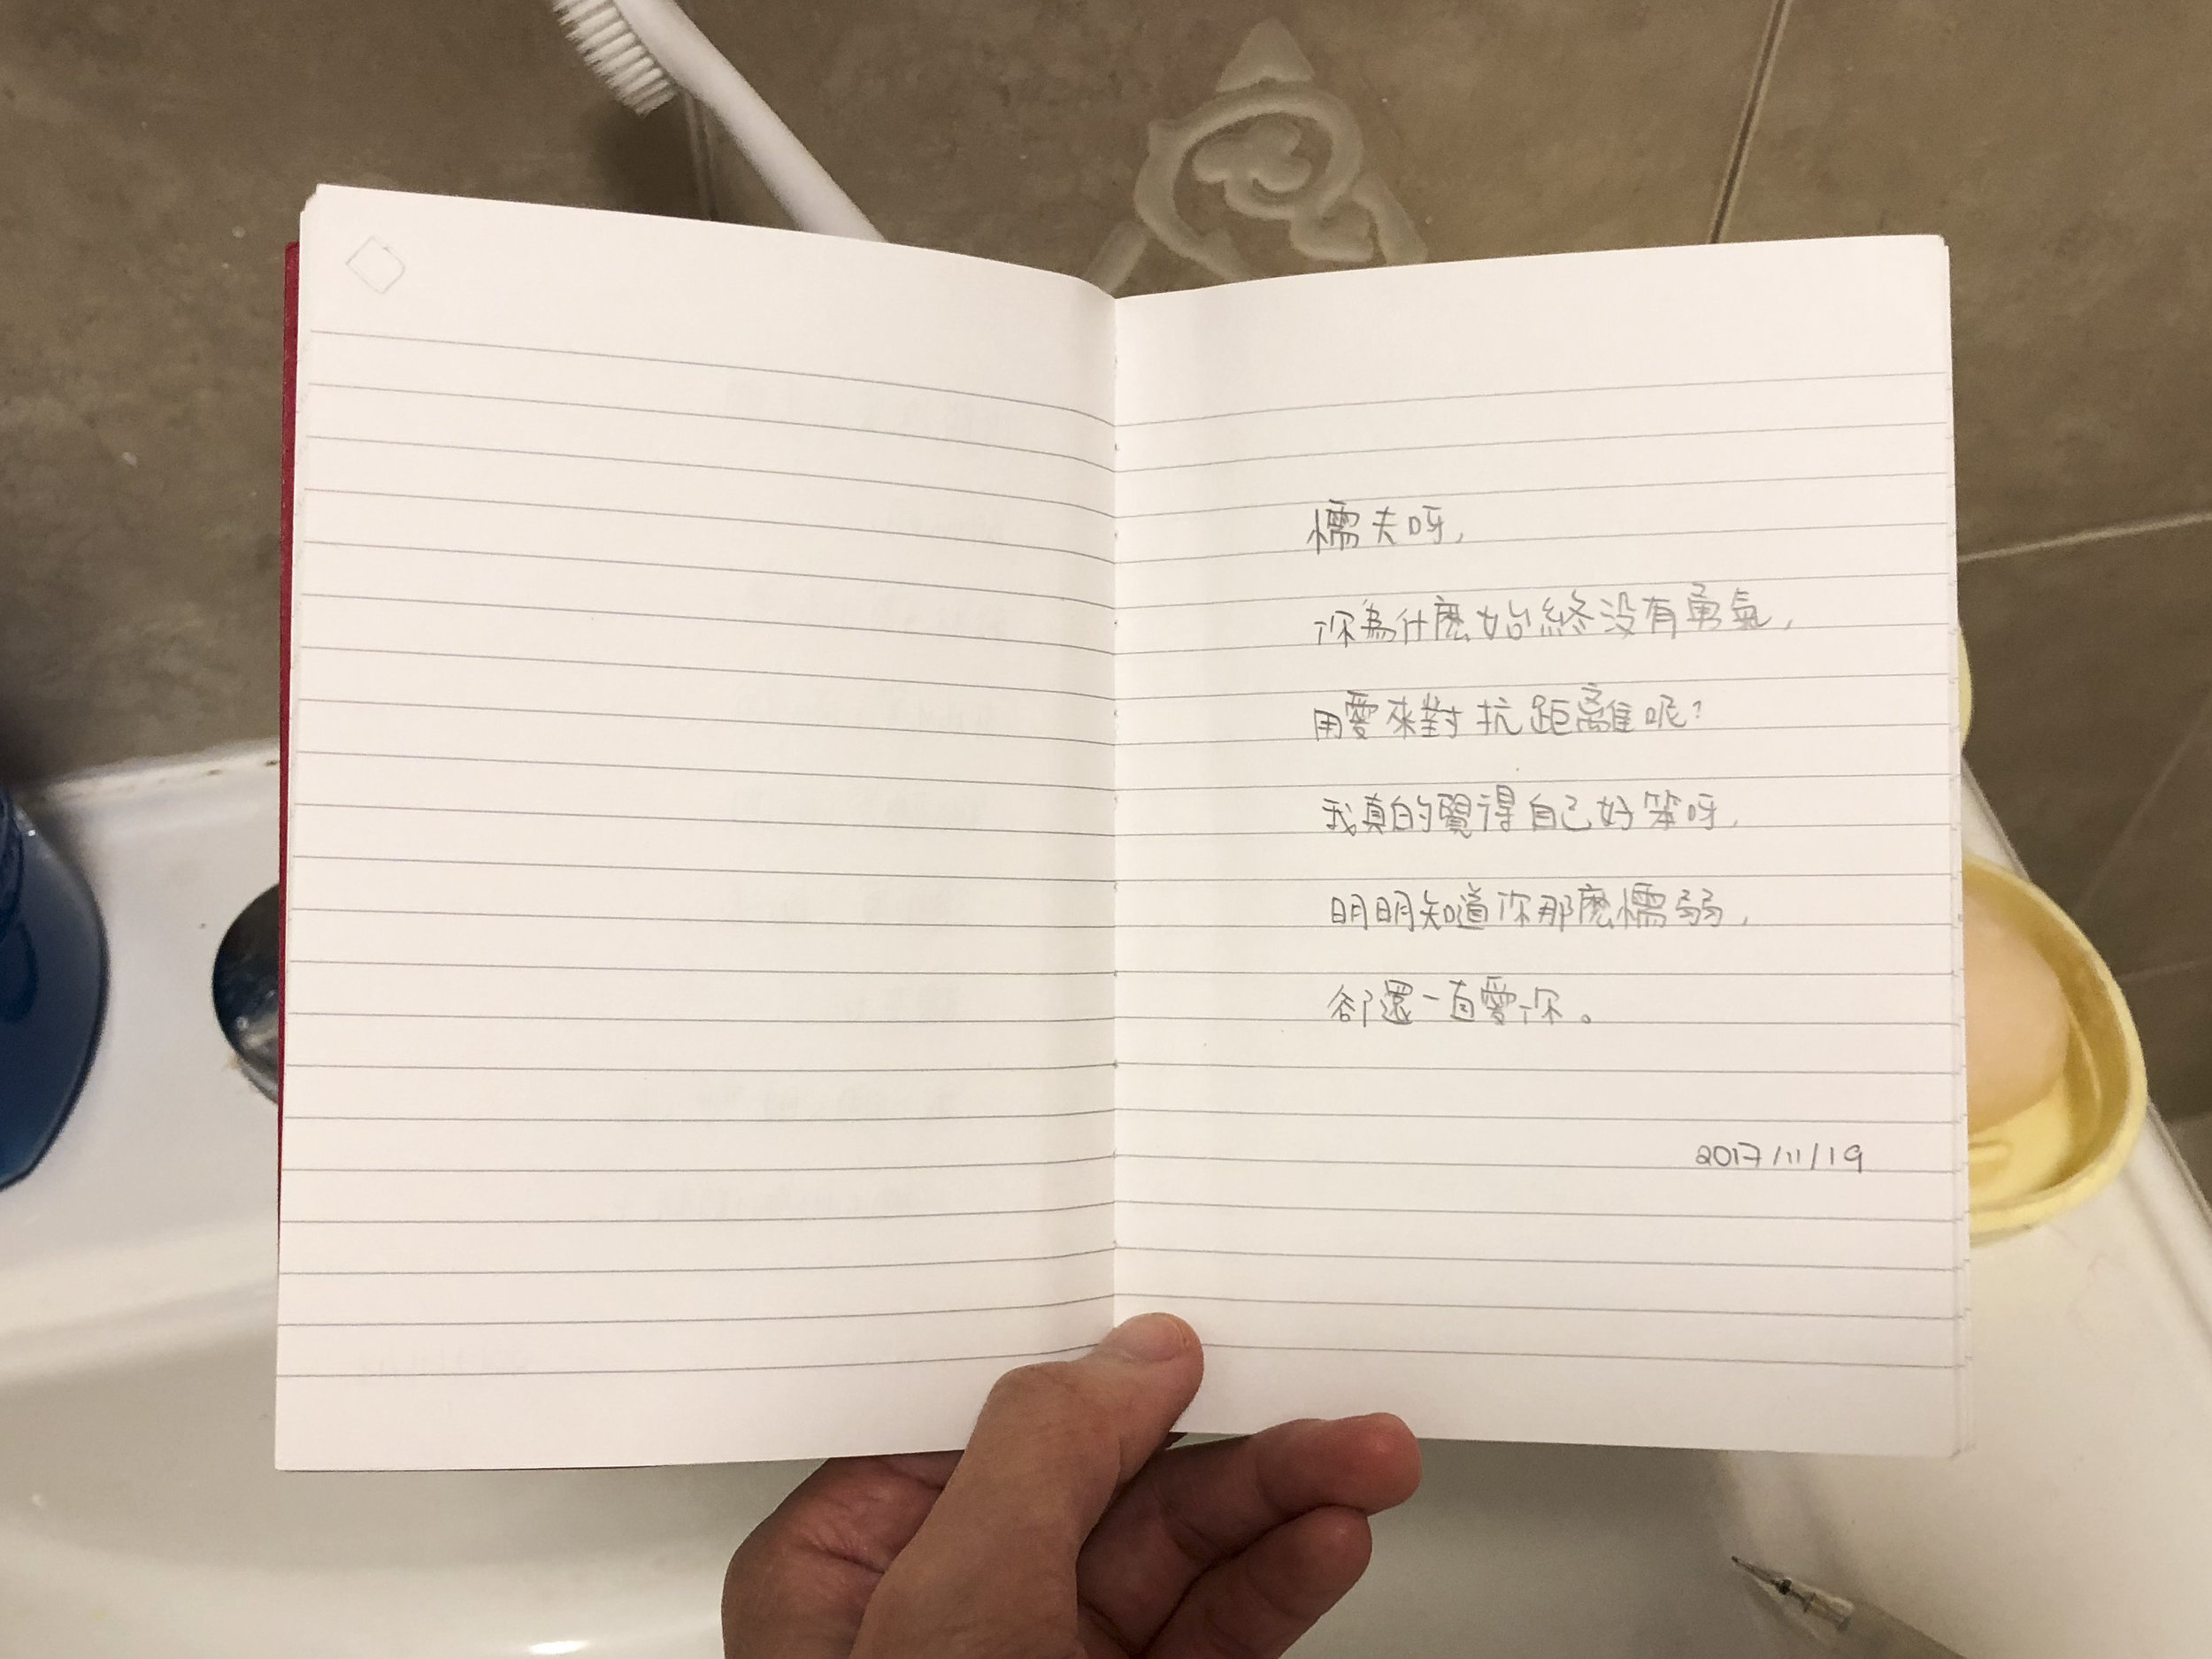 懦夫呀,
你為什麼始終沒有勇氣,
用愛來對抗距離呢?
我真的覺得自己好笨呀,
明明知道你那麼懦弱,
卻還一直愛你。
2017/11/19